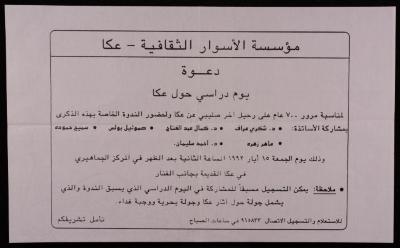 مؤسسة الأسوار الثقافية - عكا
دعــوة
يوم دراسي حول عكا
لمناسبة مرور ٧٠٠ عام على رحيل آخر صليبي عن عكا ولحضور الندوة الخاصة بهذه الذكرى
بمشاركة الأساتذة: • د. شكري عراف • د. كمال عبد الفتاح • صموئيل بولس • سميح حمودة
• ماهر زهره • د. احمد سليمان.
وذلك يوم الجمعة ١٥ أيار ١٩٩٢ الساعة الثانية بعد الظهر في المركز الجماهيري
في عكا القديمة بجانب الفنار
• ملاحظة: يمكن التسجيل مسبقاً للمشاركة في اليوم الدراسي الذي يسبق الندوة والذي
يشمل جولة حول آثار عكا وجولة بحرية ووجبة غداء.
للاستعلام والتسجيل الاتصال ٩١٥٨٣٣ في ساعات الصباح
نأمل تشريفكم